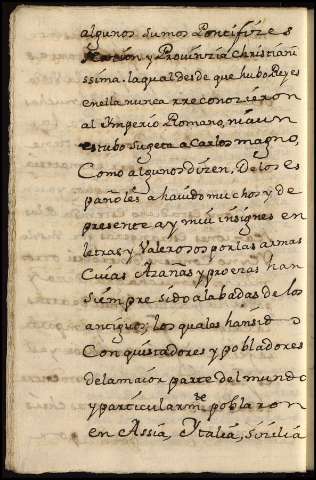 algunos sumos Pontifizes
Nacion y Provinzia Christiani
ssima. la qual desde que hubo Reyes
en ella nunca rreconozieron
al Ymperio Romano, ni aun
estubo sugeta a Carlos magno,
Como algunos dizen. De los es
pañoles a havido muchos y de
presente ay mui insignes en
letras, y Valerosos por las armas
Cuias Azañas y proezas han
siempre sido alabadas de los
antiguos, los quales han sido
Conquistadores y pobladores
de la maior parte del mundo
y particularmte poblaron
en Assia, Italia, sicilia